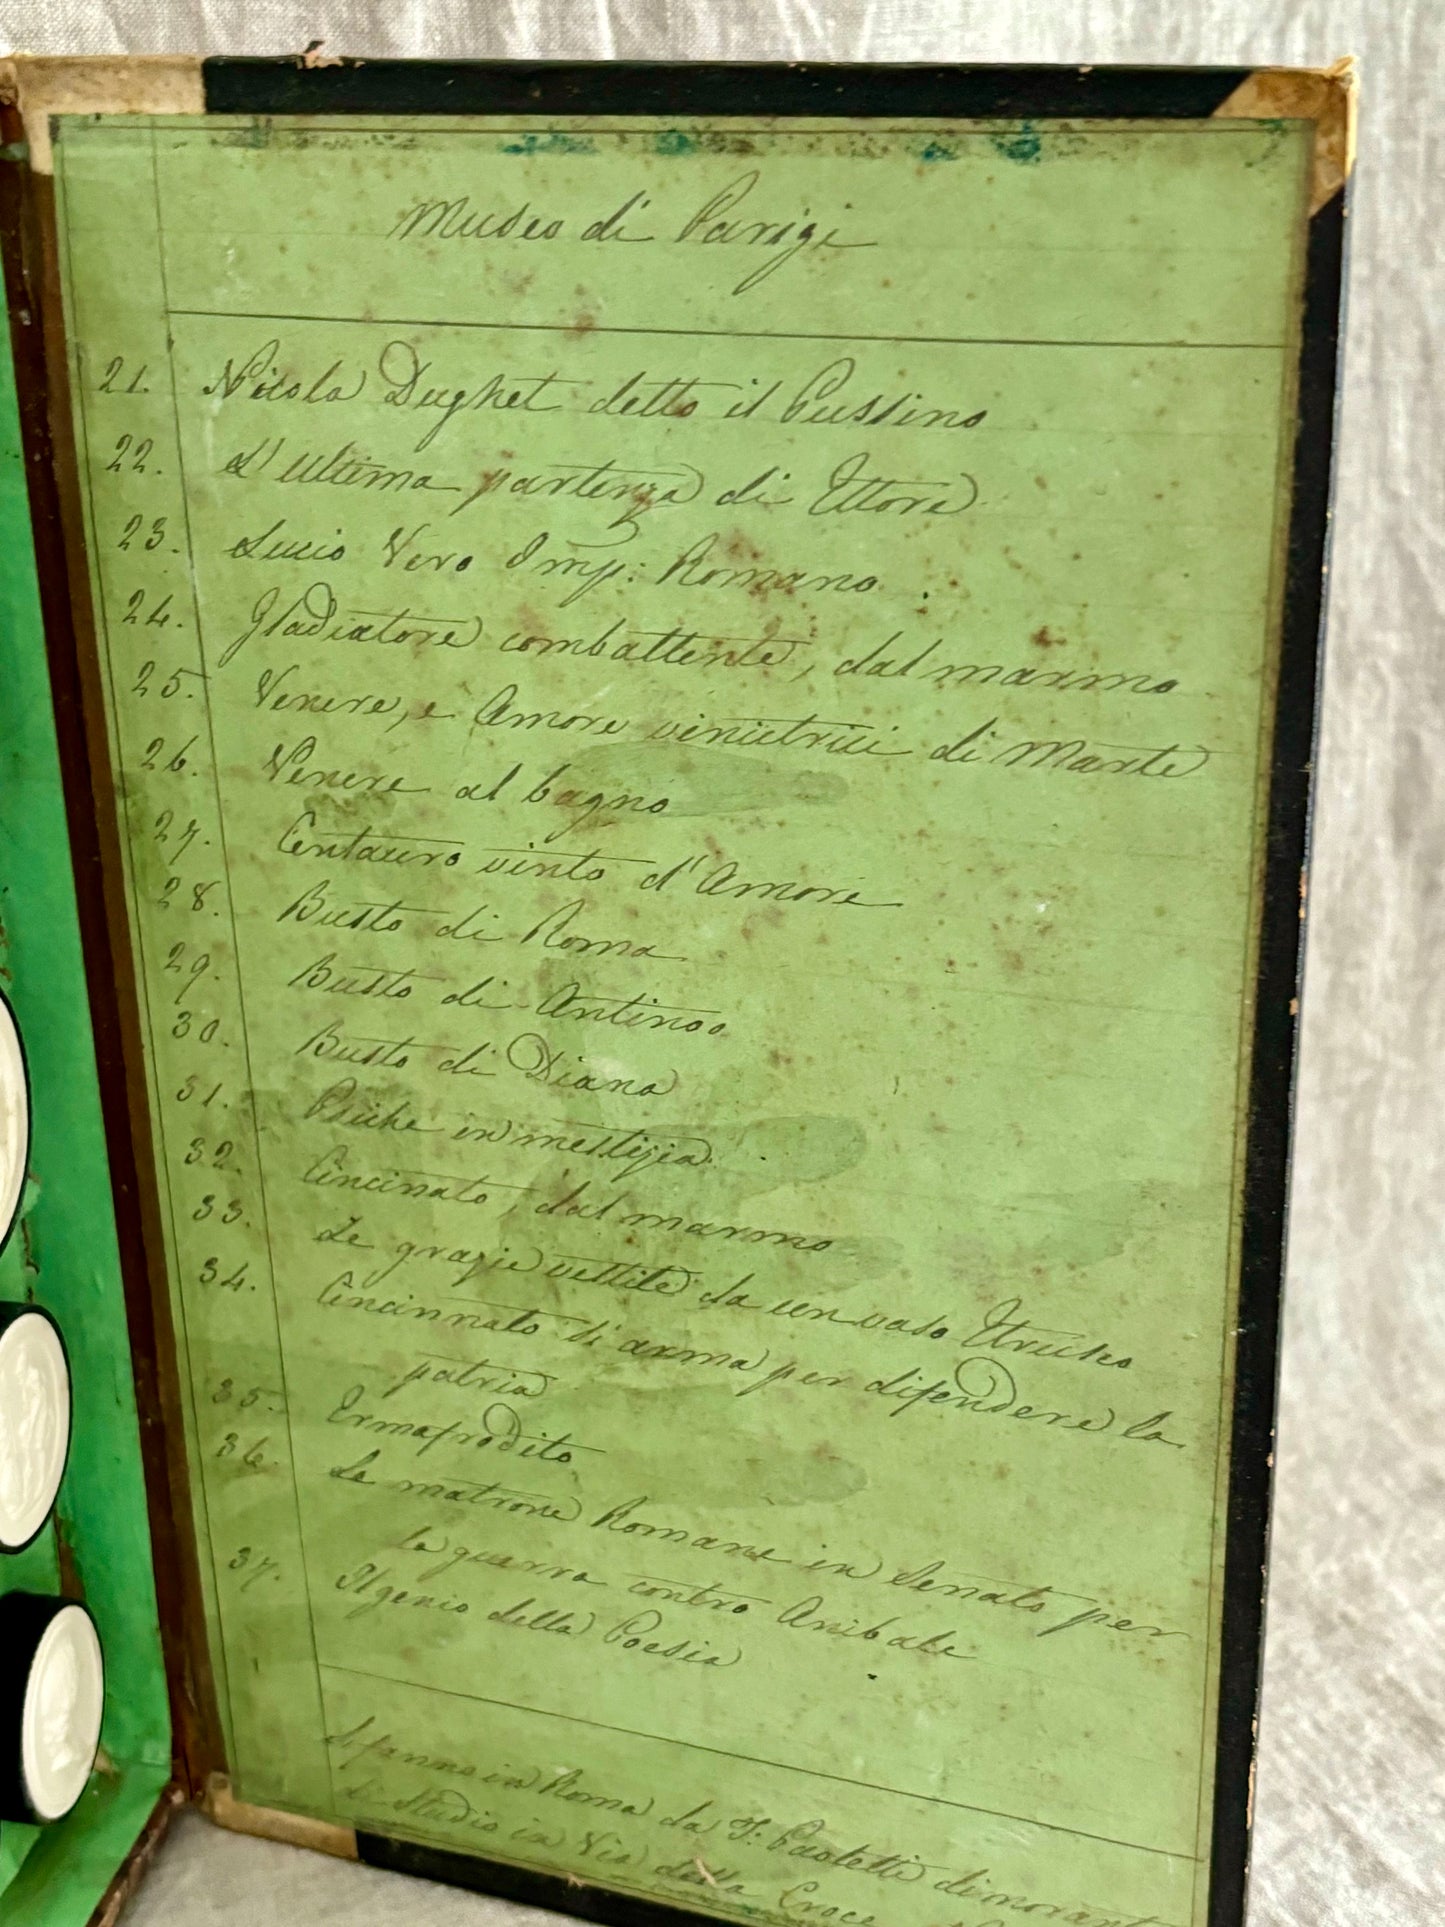 Museo di Parigi
21. Nicola Dughet detto il Pussino
22. L'ultima partenza di Ettore
23. Lucio Vero Imp: Romano
24. Gladiatore combattente, dal marmo
25. Venere, e Amore vincitrici di Marte
26. Venere al bagno
27. Centauro vinto d'Amore
28. Busto di Roma
29. Busto di Antinoo
30. Busto di Diana
31. Psiche in mestizia
32. Cincinato, dal marmo
33. Le grazie vestite da un vaso Etrusco
34. Cincinnato si arma per difendere la
patria
35. Ermafrodito
36. Le matrone Romane in Senato per
la guerra contro Anibale
37. Il genio della Poesia
Si fanno in Roma da F: Paoletti dimorant
di Studio in Via della Croce